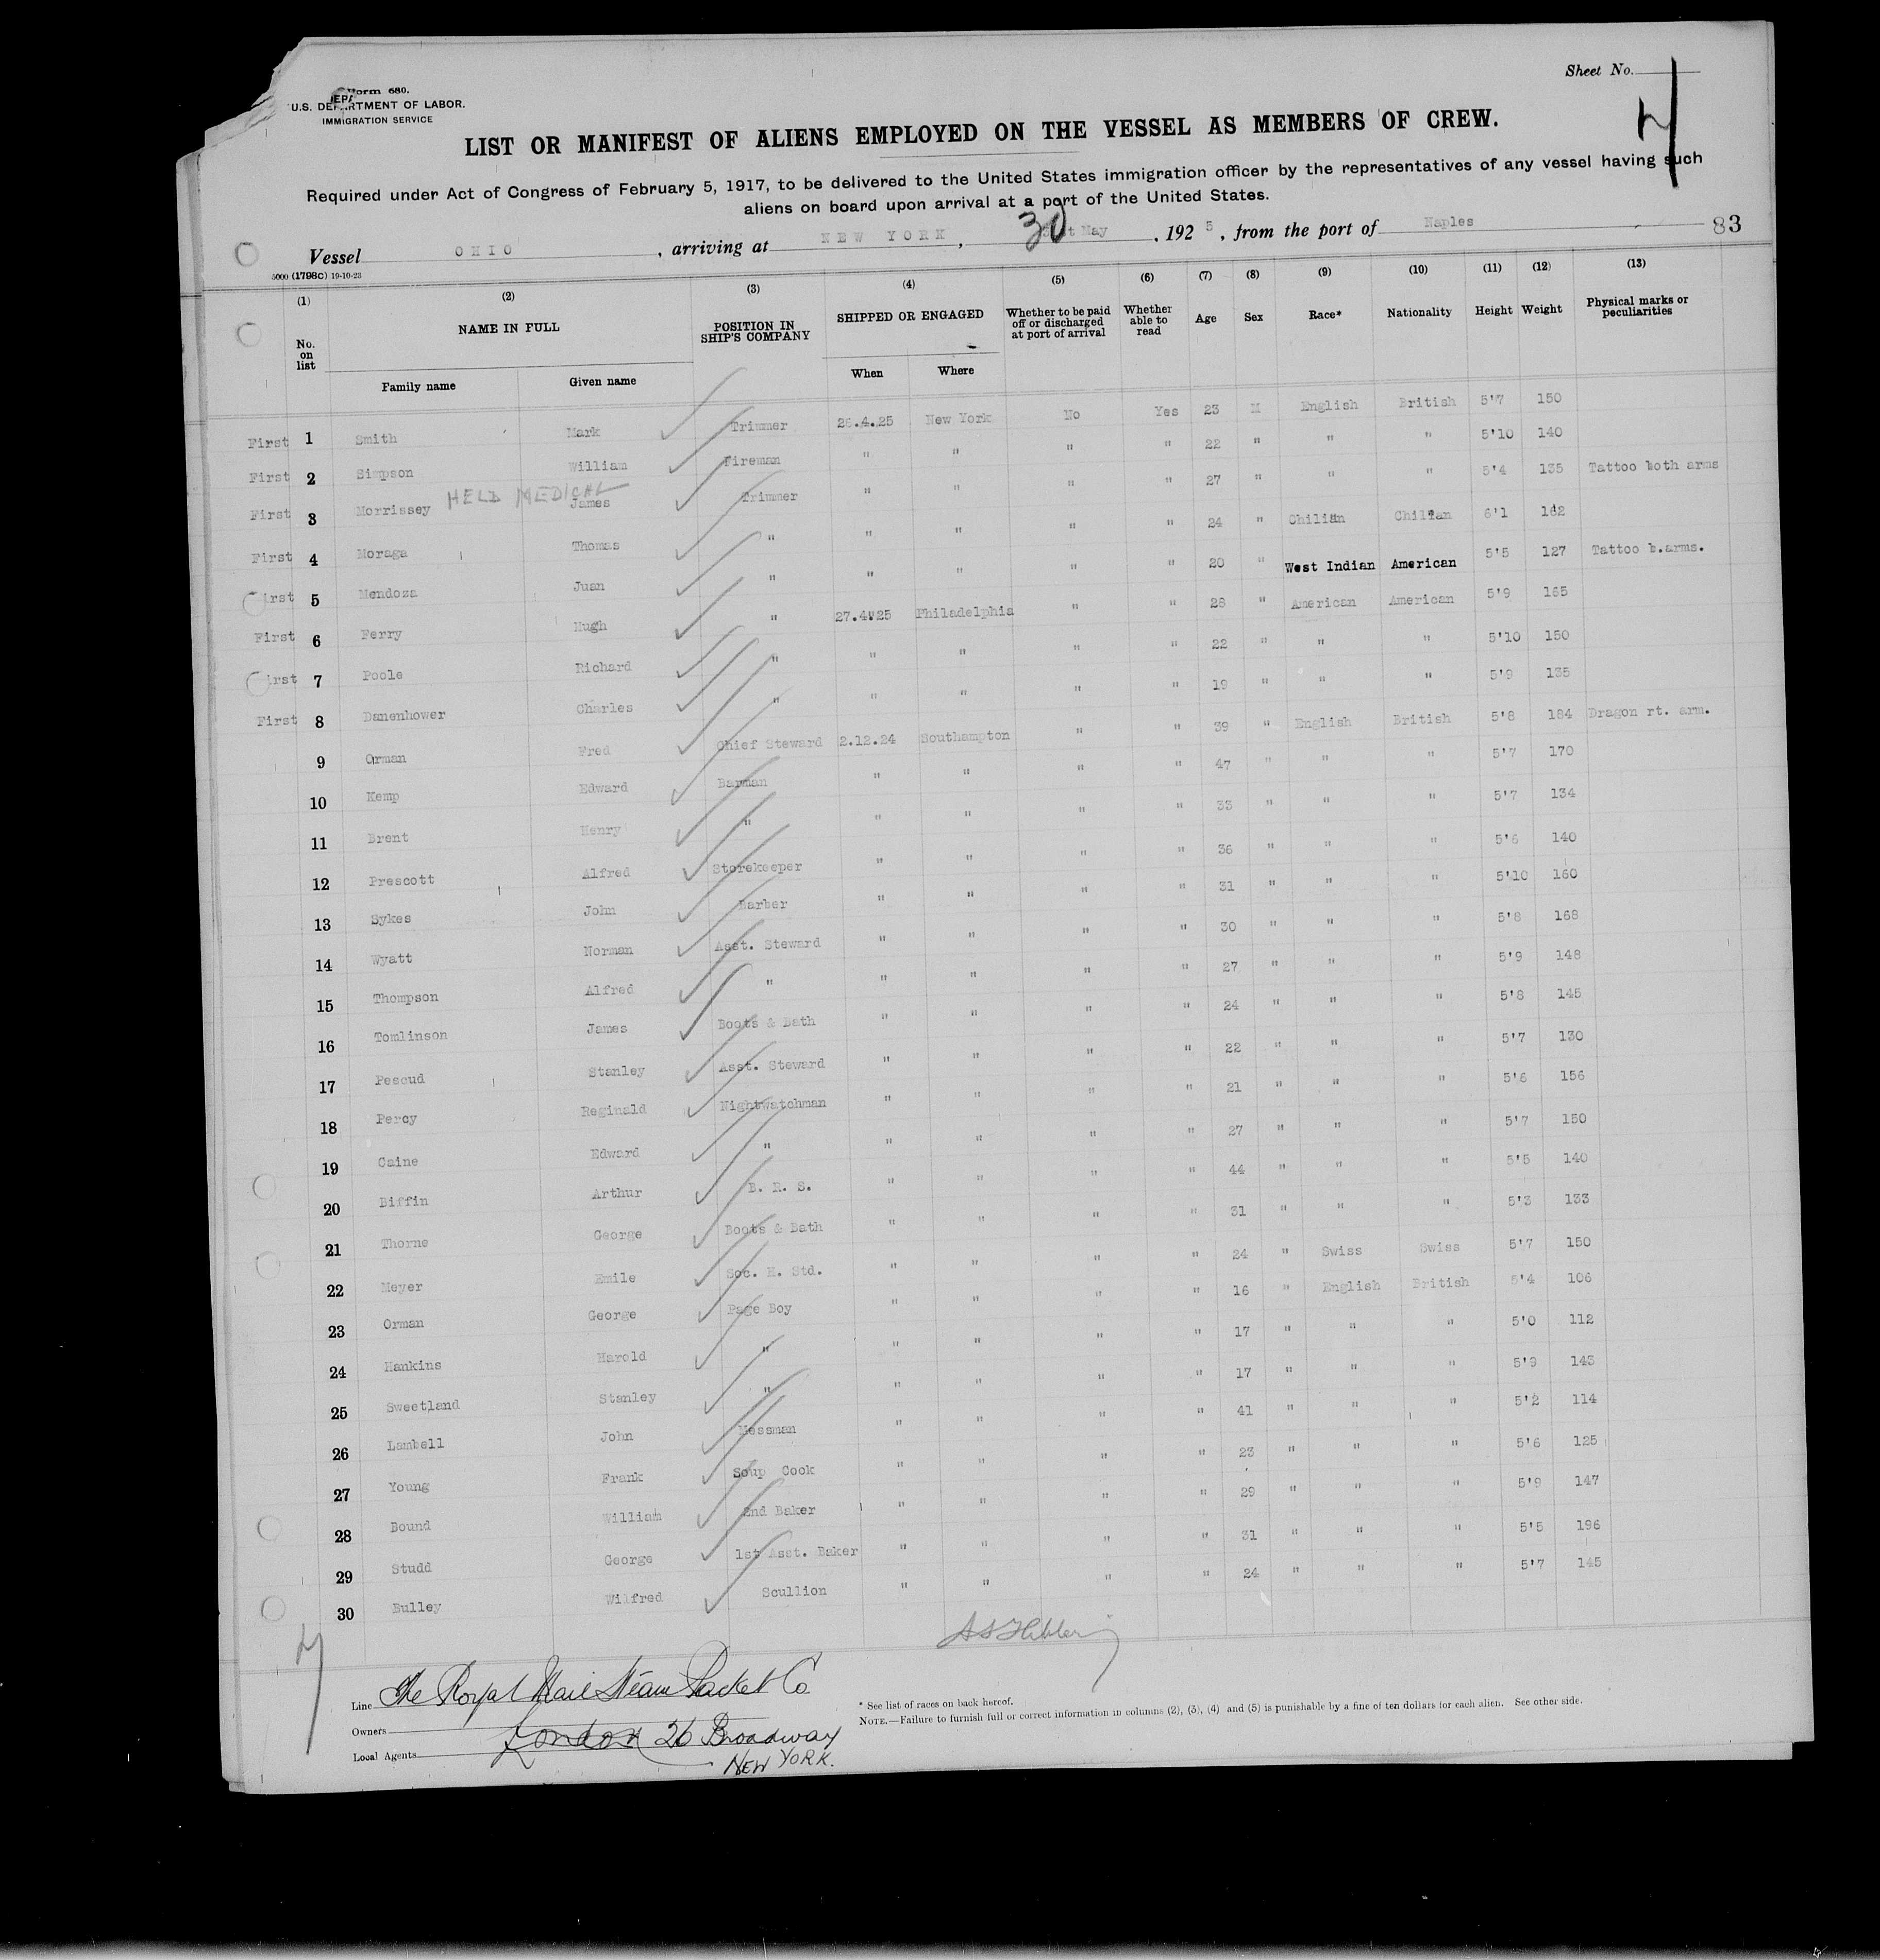 Sheet No. 4
Form 680.
U.S. DEPARTMENT OF LABOR.
IMMIGRATION SERVICE
LIST OR MANIFEST OF ALIENS EMPLOYED ON THE VESSEL AS MEMBERS OF CREW.
Required under Act of Congress of February 5, 1917, to be delivered to the United States immigration officer by the representatives of any vessel having such
aliens on board upon arrival at a port of the United States.
Vessel OHIO, arriving at NEW YORK, 30 May, 1925, from the port of Naples 83
5000 (1798C) 19-10-23
(1) (2) (3) (4) (5) (6) (7) (8) (9) (10) (11) (12) (13)
No. on list NAME IN FULL POSITION IN SHIP'S COMPANY SHIPPED OR ENGAGED Whether to be paid off or discharged at port of arrival Whether able to read Age Sex Race* Nationality Height Weight Physical marks or peculiarities
Family name Given name When Where
First 1 Smith Mark Trimmer 26.4.25 New York No Yes 23 M English British 5'7 150
First 2 Simpson William Fireman " " " " 22 " " " 5'10 140
HELD MEDICAL
First 3 Morrissey James Trimmer " " " " 27 " " " 5'4 135 Tattoo both arms
First 4 Moraga Thomas " " " " " 24 " Chilian Chilian 6'1 162
First 5 Mendoza Juan " " " " " 20 " West Indian American 5'5 127 Tattoo b.arms.
First 6 Ferry Hugh " 27.4.25 Philadelphia " " 28 " American American 5'9 165
First 7 Poole Richard " " " " " 22 " " " 5'10 150
First 8 Danenhower Charles " " " " " 19 " " " 5'9 135
9 Orman Fred Chief Steward 2.12.24 Southampton " " 39 " English British 5'8 184 Dragon rt. arm.
10 Kemp Edward Barman " " " " 47 " " " 5'7 170
11 Brent Henry " " " " " 33 " " " 5'7 134
12 Prescott Alfred Storekeeper " " " " 36 " " " 5'6 140
13 Sykes John Barber " " " " 31 " " " 5'10 160
14 Wyatt Norman Asst. Steward " " " " 30 " " " 5'8 168
15 Thompson Alfred " " " " " 27 " " " 5'9 148
16 Tomlinson James Boots & Bath " " " " 24 " " " 5'8 145
17 Pescud Stanley Asst. Steward " " " " 22 " " " 5'7 130
18 Percy Reginald Nightwatchman " " " " 21 " " " 5'6 156
19 Caine Edward " " " " " 27 " " " 5'7 150
20 Biffin Arthur B. R. S. " " " " 44 " " " 5'5 140
21 Thorne George Boots & Bath " " " " 31 " " " 5'3 133
22 Meyer Emile Sec. H. Std. " " " " 24 " Swiss Swiss 5'7 150
23 Orman George Page Boy " " " " 16 " English British 5'4 106
24 Hankins Harold " " " " " 17 " " " 5'0 112
25 Sweetland Stanley " " " " " 17 " " " 5'9 143
26 Lambell John Messman " " " " 41 " " " 5'2 114
27 Young Frank Soup Cook " " " " 23 " " " 5'6 125
28 Bound William 2nd Baker " " " " 29 " " " 5'9 147
29 Studd George 1st Asst. Baker " " " " 31 " " " 5'5 196
30 Bulley Wilfred Scullion " " " " 24 " " " 5'7 145
4
Line The Royal Mail Steam Packet Co
Owners
Local Agents London 26 Broadway
NEW YORK.
* See list of races on back hereof.
NOTE.—Failure to furnish full or correct information in columns (2), (3), (4) and (5) is punishable by a fine of ten dollars for each alien. See other side.